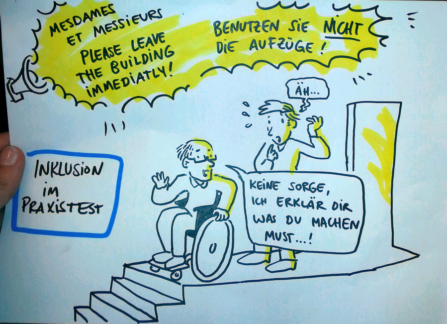 MESDAMES
ET MESSIEURS
PLEASE LEAVE
THE BUILDING
IMMEDIATLY!
BENUTZEN SIE NICHT
DIE AUFZÜGE!
ÄH...
INKLUSION
IM
PRAXISTEST
KEINE SORGE,
ICH ERKLÄR DIR
WAS DU MACHEN
MUST...!